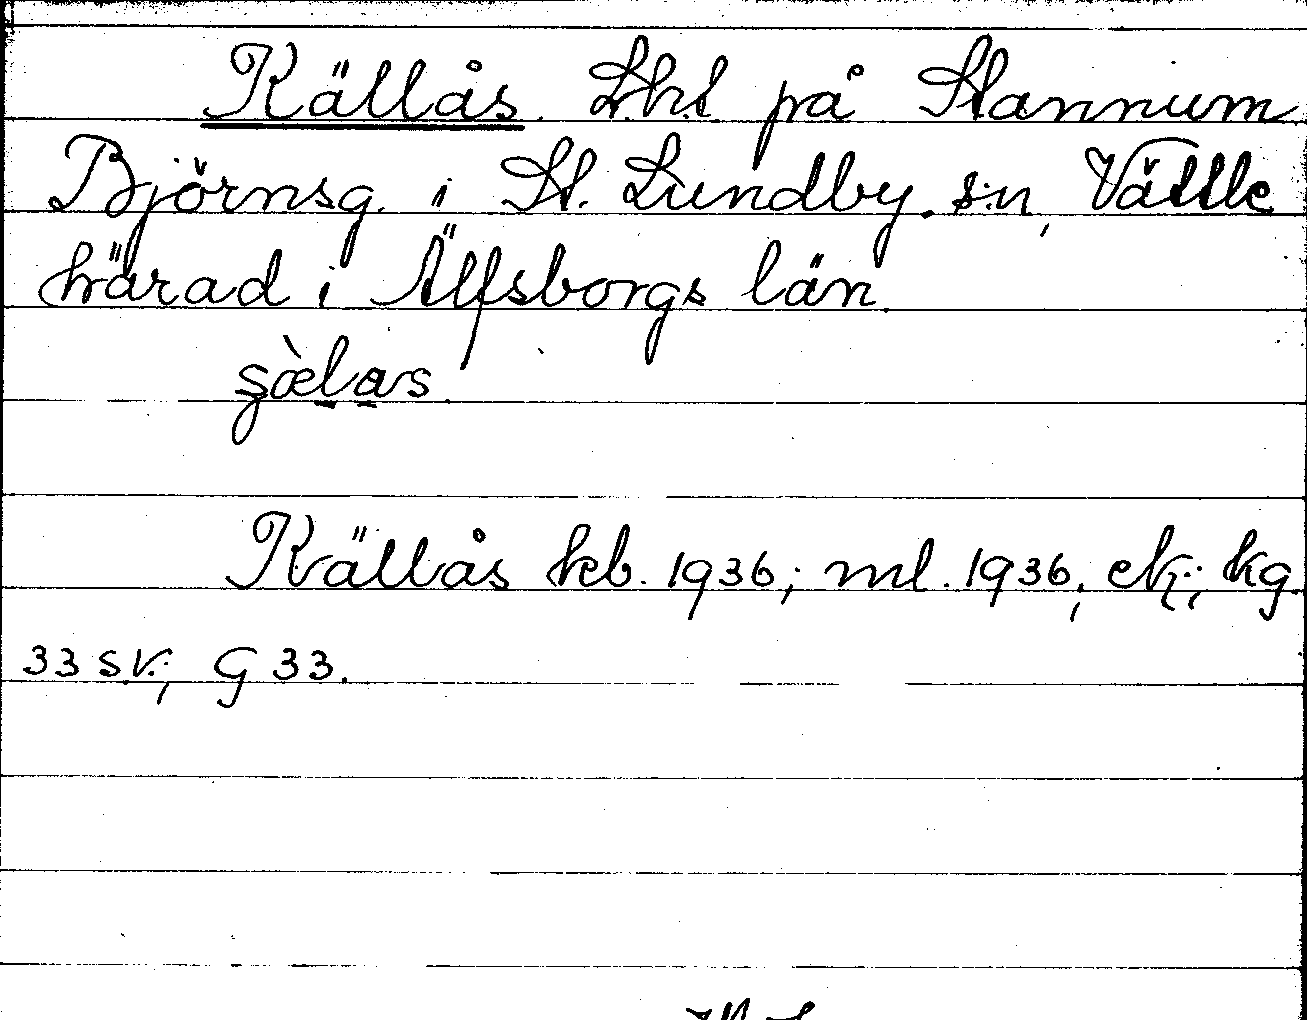 Källås Lht på Stannum
Björnsg. i St. Lundby s:n, Vättle
härad i Älfsborgs län.
Källås kb. 1936; ml. 1936; ek.; kg.
33 s.v.; G 33.